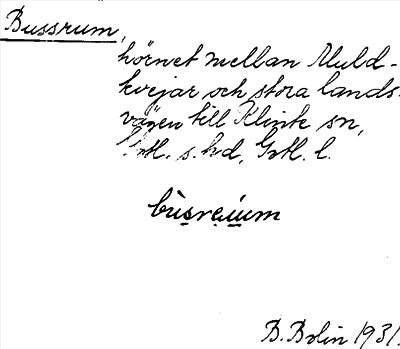 Bussrum,
hörnet mellan Muld-
kvejar och stora lands-
vägen till Klinte sn,
Gotl. s. hd, Gotl. l.
bùsrεium
B. Bolin 1931.